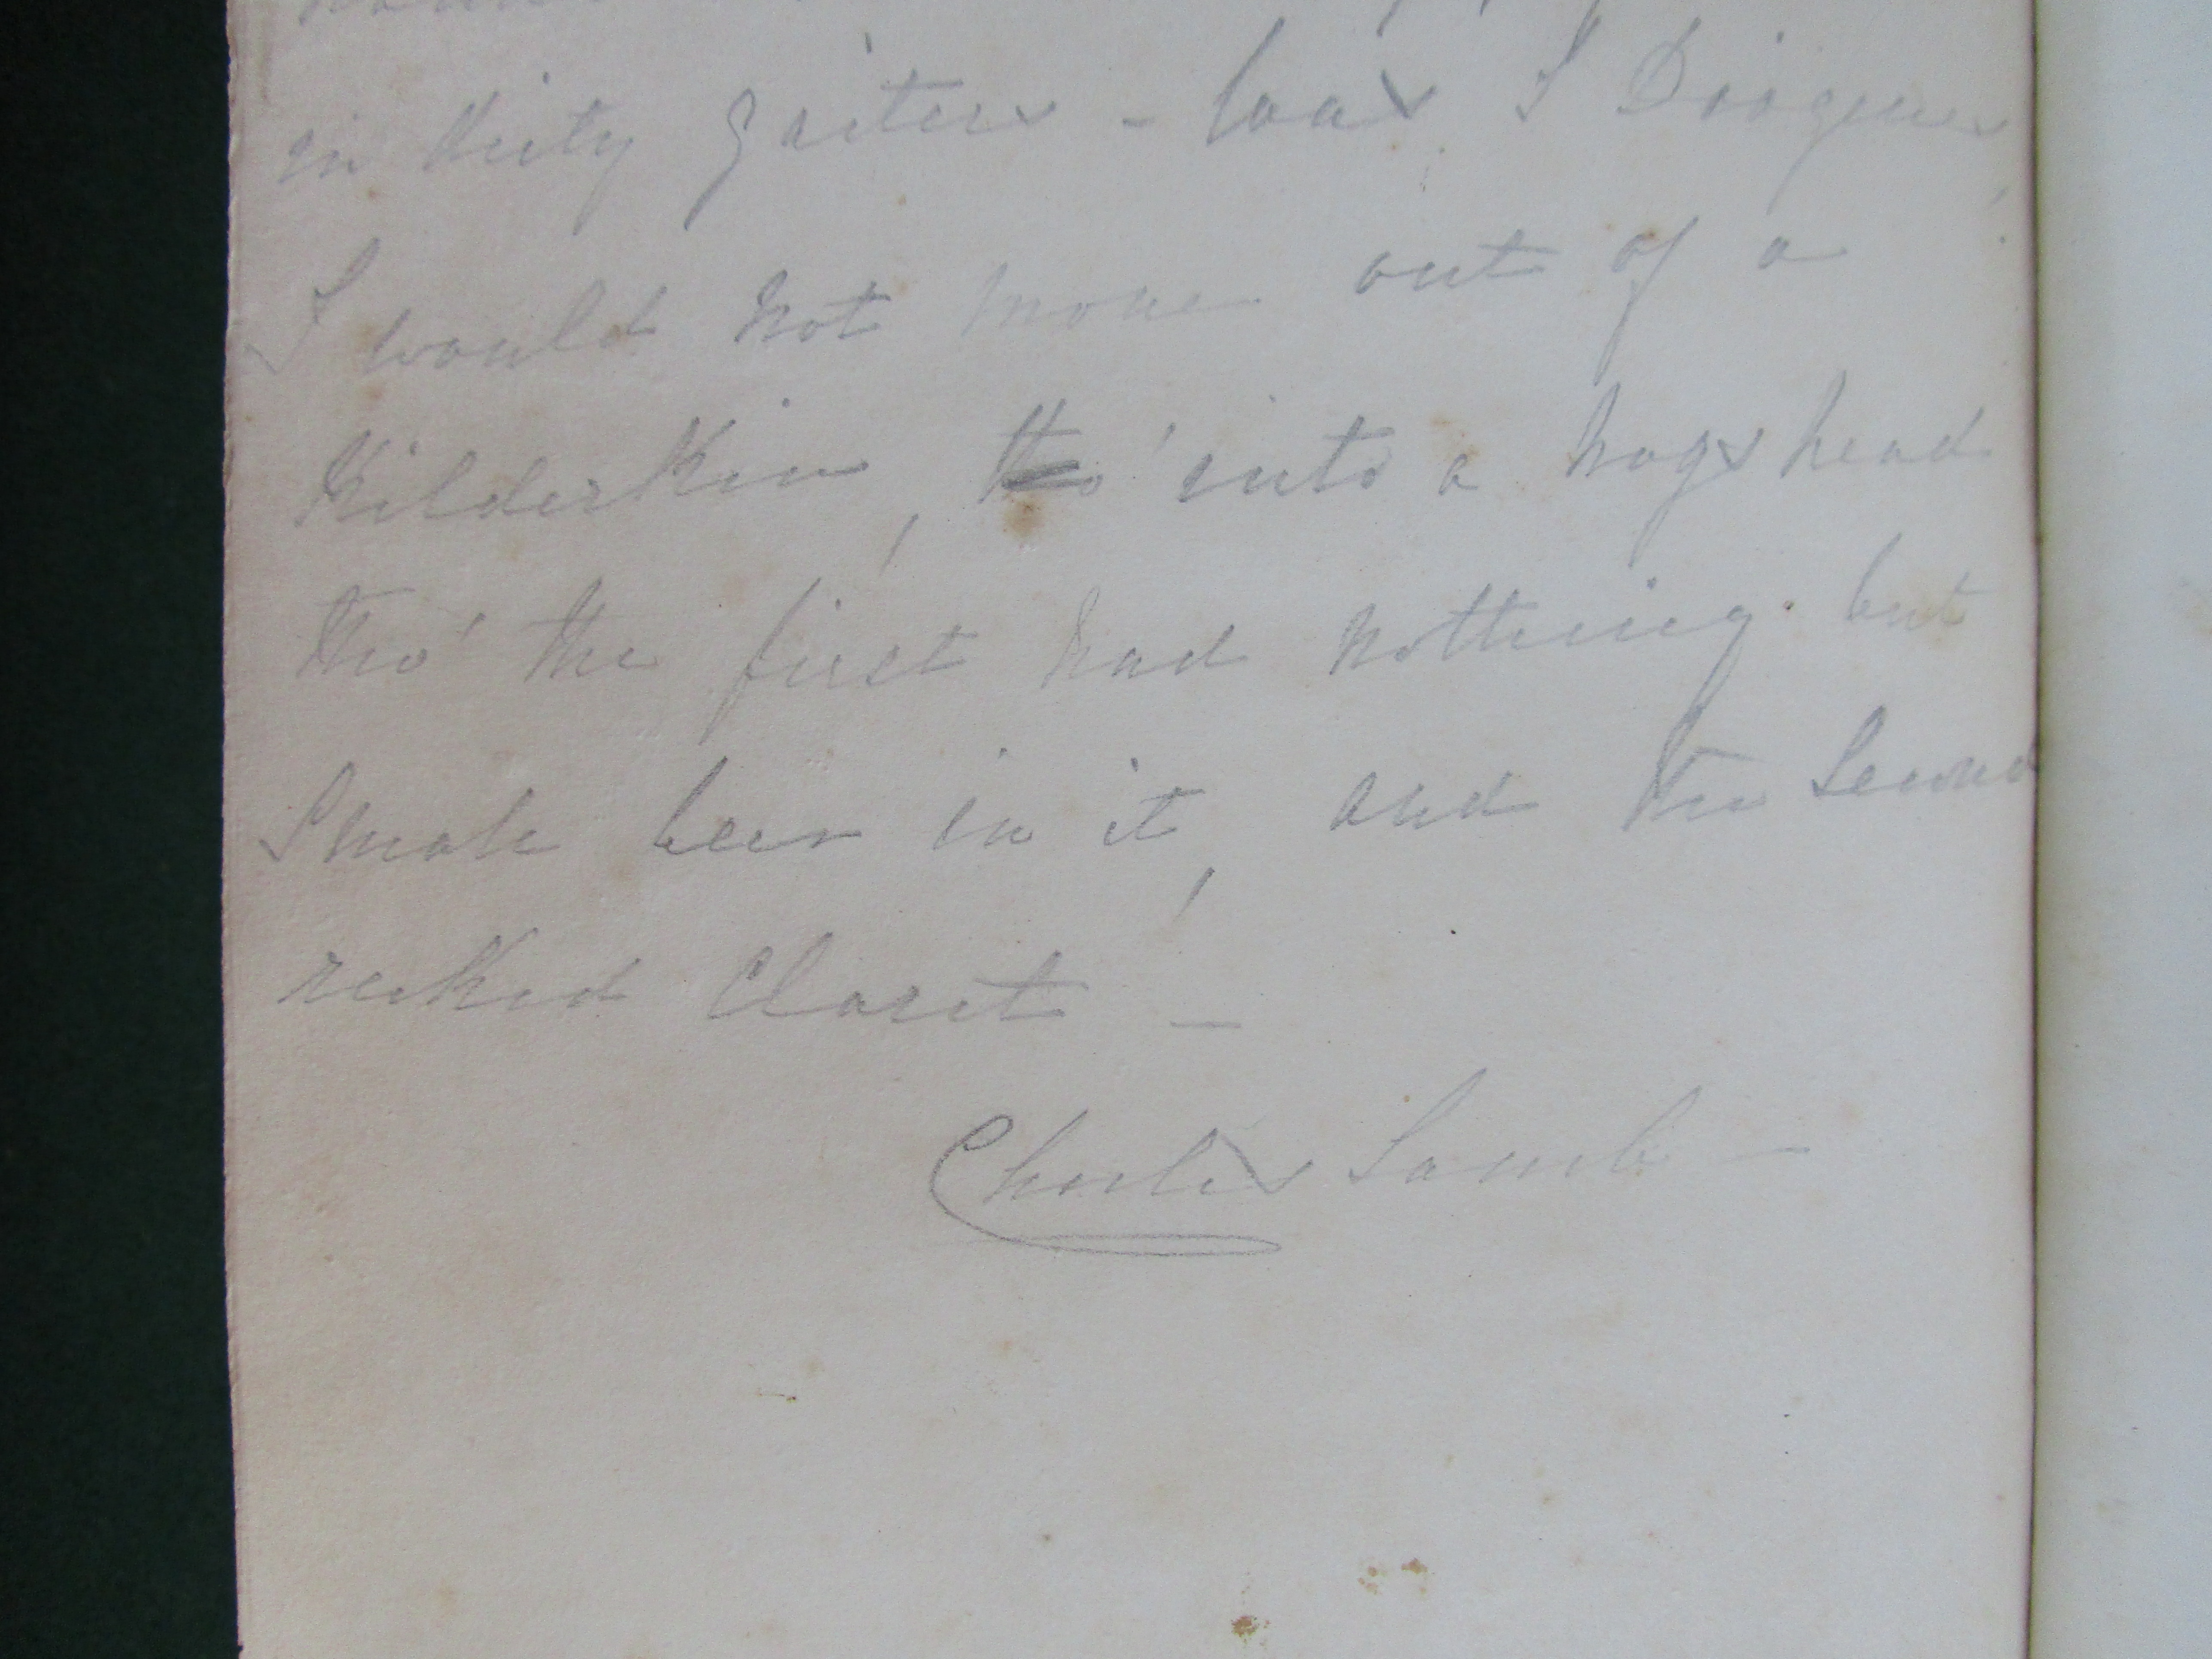 in dirty gaiters - was I Diogenes,
I would not move out of a
Kilderkin, tho' into a hogshead
tho' the first had nothing but
Small beer in it, and the Second
reeked Claret -
Charles Lamb -